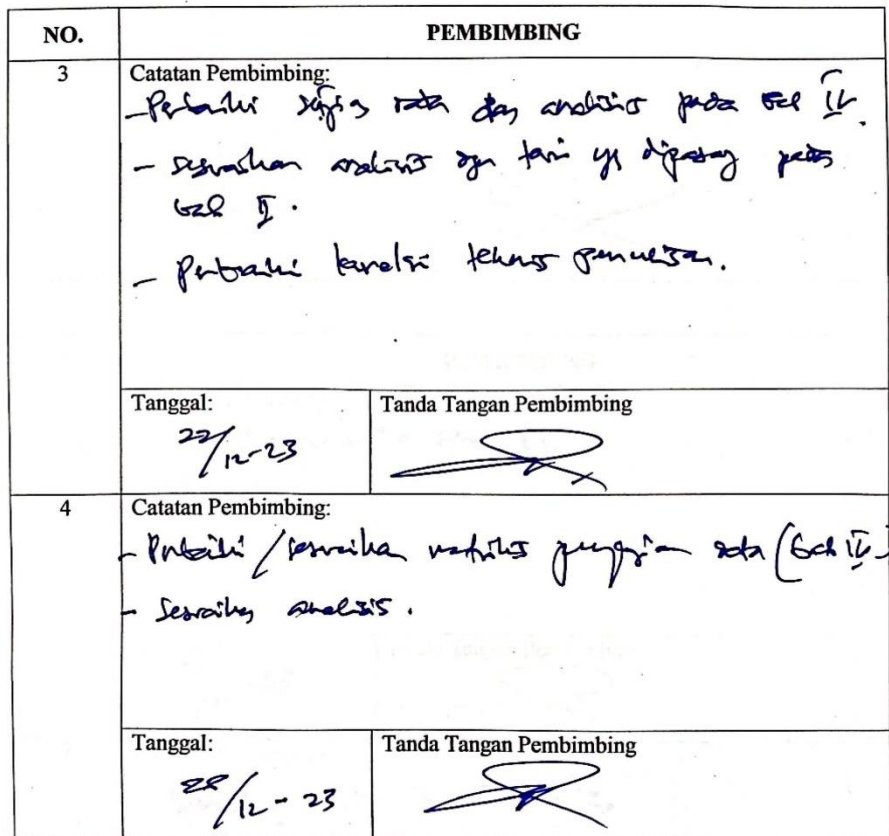 NO. PEMBIMBING
3 Catatan Pembimbing:
- Perbaiki sajian data dan analisis pada Bab IV.
- sesuaikan analisis dgn teori yg pada
bab II.
- Perbaiki teknis penulisan.
Tanggal: Tanda Tangan Pembimbing
22/12-23
4 Catatan Pembimbing:
- Perbaiki / sesuaikan data (Bab IV)
- Sesuaikan analisis.
Tanggal: Tanda Tangan Pembimbing
28/12-23